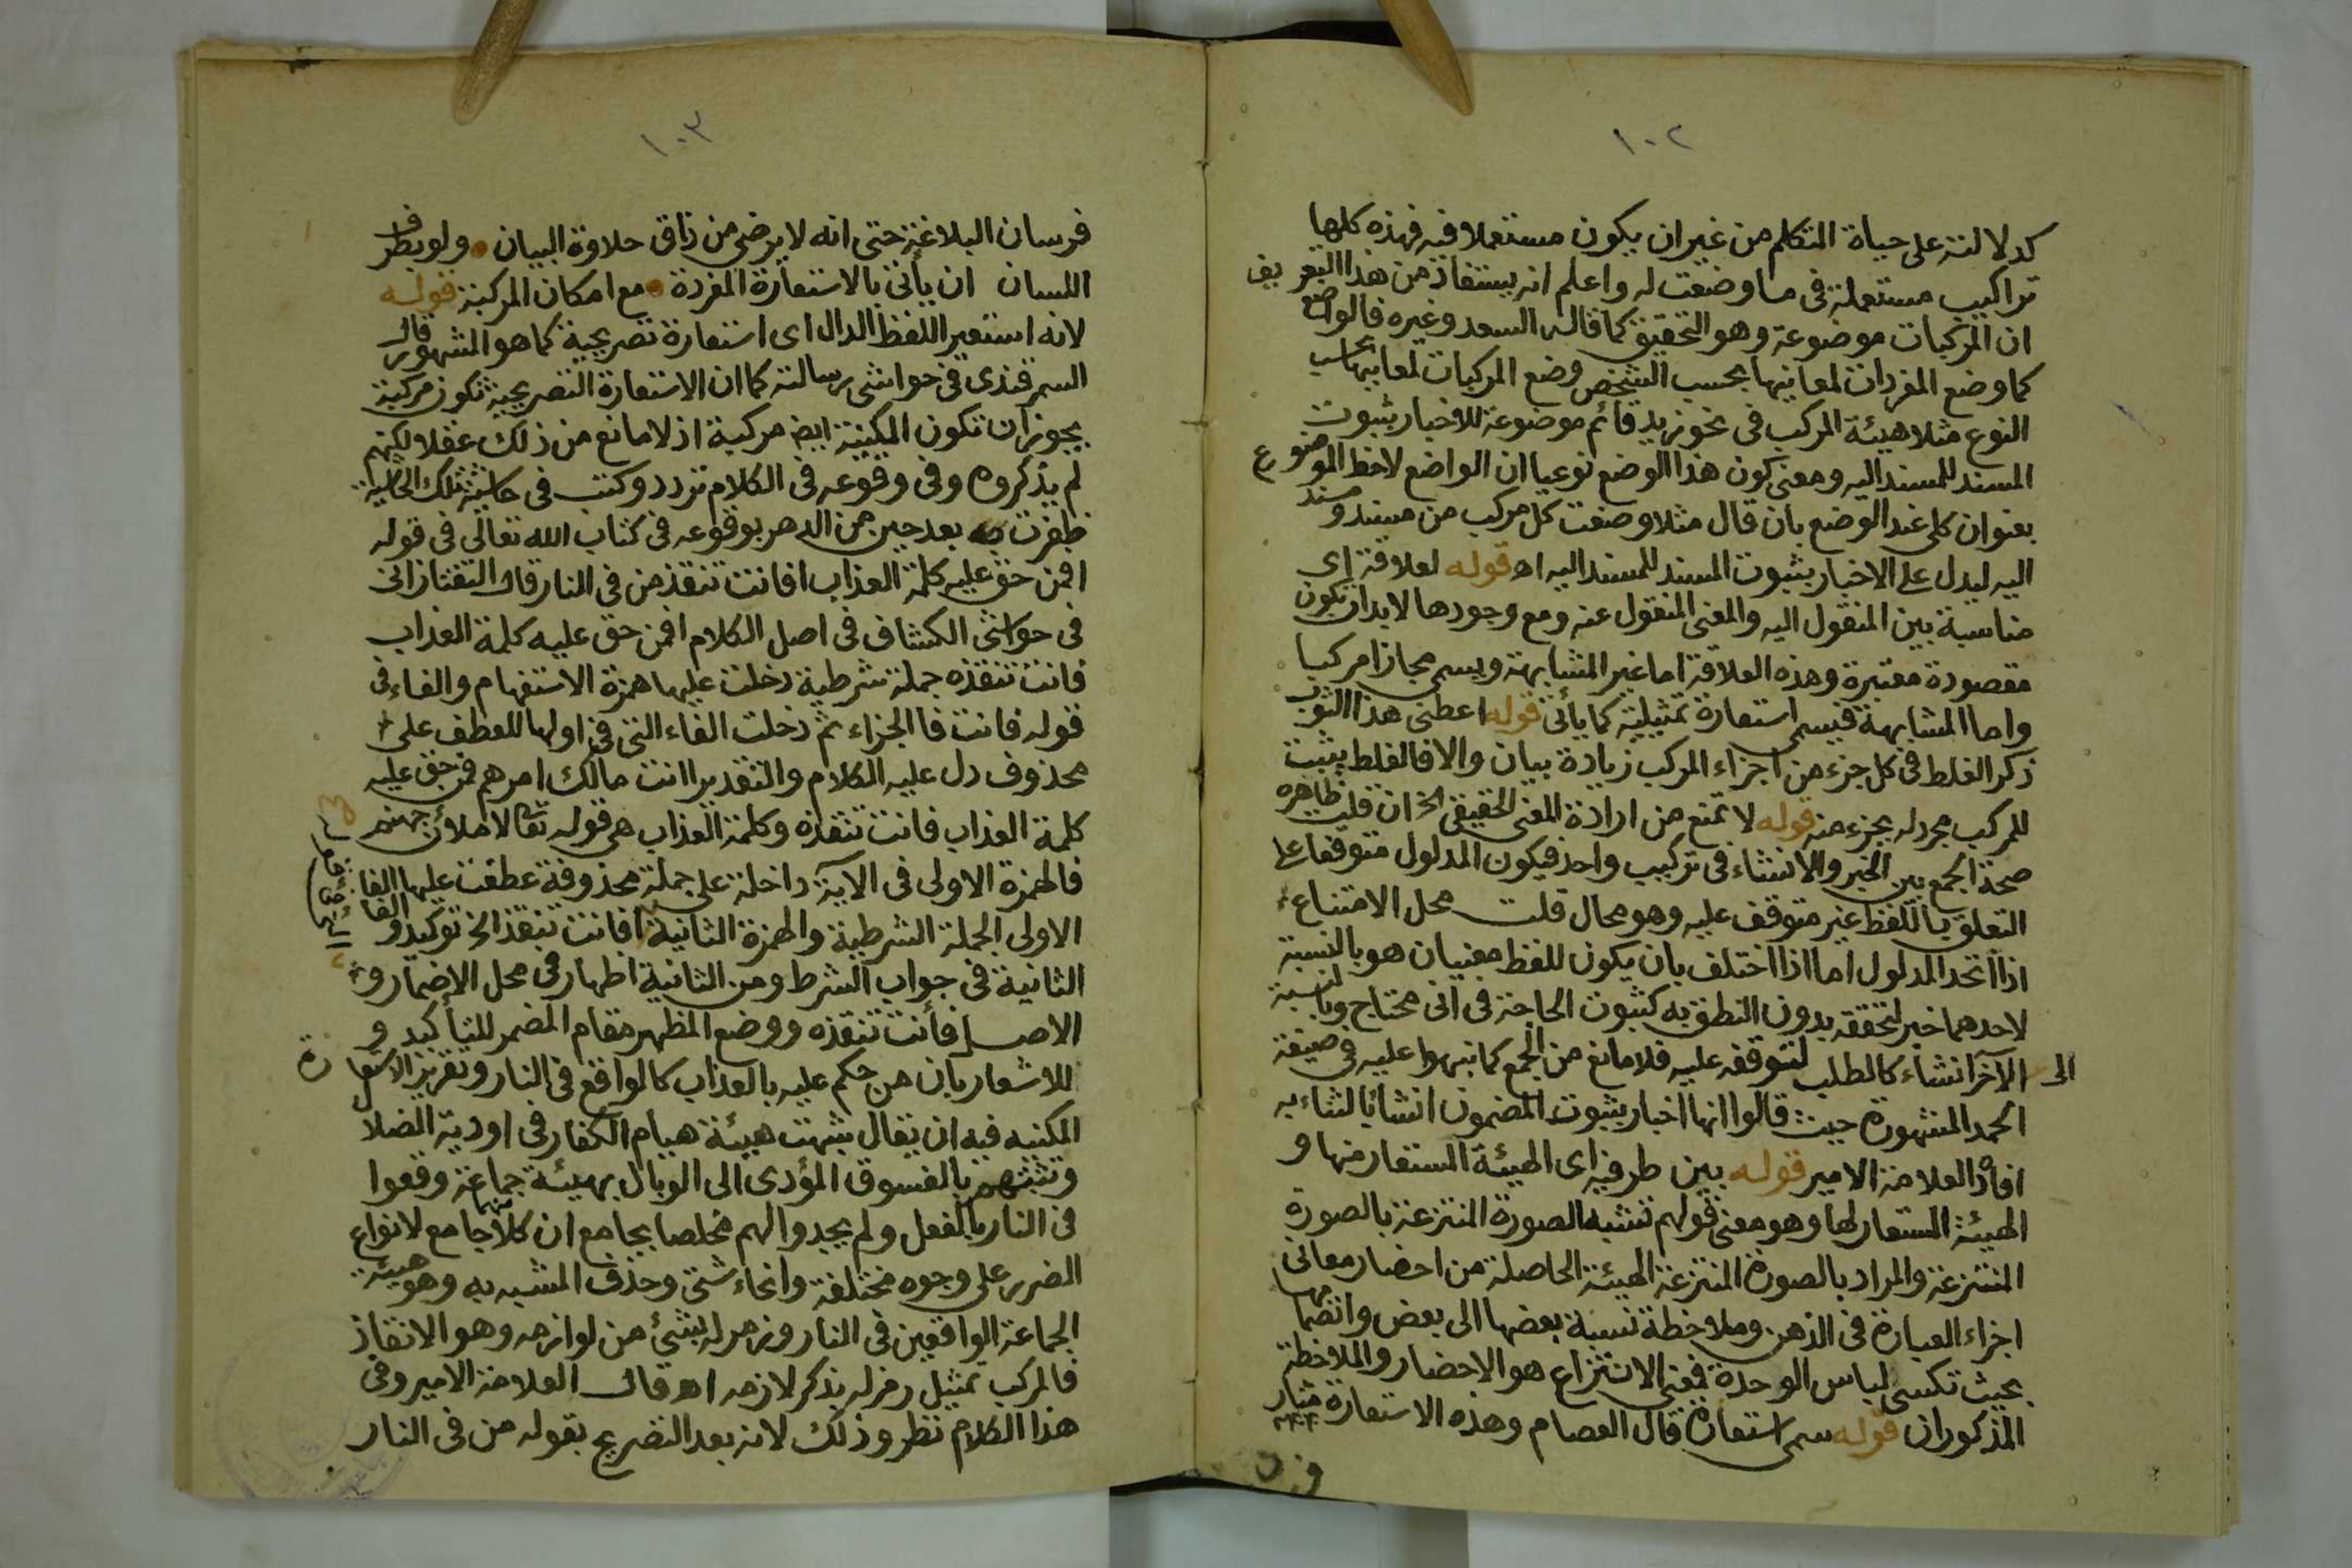 ١٠٢
كدلالته على حياة المتكلم من غير ان يكون مستعملا فيه فهذه كلها
تراكيب مستعملة فى ما وضعت له واعلم انه يستفاد من هذا التعريف
ان المركبات موضوعة وهو التحقيق كما قاله السعد وغيره فالواضع
كما وضع المفردات لمعانيها بحسب الشخص وضع المركبات لمعانيها بحسب
النوع مثلا هيئة المركب فى نحو زيد قائم موضوعة للاخبار بثبوت
المسند للمسند اليه ومعنى كون هذا الوضع نوعيا ان الواضع لاحظ الموضوع
بعنوان كلى عند الوضع بان قال مثلا وضعت كل مركب من مسند ومسند
اليه ليدل على الاخبار بثبوت المسند للمسند اليه اه قوله لعلاقة اى
مناسبة بين المنقول اليه والمعنى المنقول عنه ومع وجودها لابد ان تكون
مقصودة معتبرة وهذه العلاقة اما غير المشابهة ويسمى مجازا مركبا
واما المشابهة فيسمى استعارة تمثيلية كما يأتى قوله اعطنى هذا الثوب
ذكر الغلط فى كل جزء من اجزاء المركب زيادة بيان والا فالغلط يثبت
للمركب بجرد له بجزء منه قوله لا تمنع من ارادة المعنى الحقيقى الخ ان قلت ظاهره
صحة الجمع بين الخبر والانشاء فى تركيب واحد فيكون المدلول متوقفا على
التعلق باللفظ غير متوقف عليه وهو محال قلت محل الامتناع
اذا اتحد المدلول اما اذا اختلف بان يكون للفظ معنيان هو بالنسبة
لاحدهما خبر لتحققه بدون النطق به كثبوت الحاجة فى انى محتاج وبالنسبة
الى الآخر انشاء كالطلب لتوقفه عليه فلا مانع من الجمع كما نبهوا عليه فى صيغة
الحمد المشهورة حيث قالوا انها اخبار بثبوت المضمون انشاء لثناء به
افاده العلامة الامير قوله بين طرفيه اى الهيئة المستعار منها و
الهيئة المستعار لها وهو معنى قولهم تشبه الصورة المنتزعة بالصورة
المنتزعة والمراد بالصورة المنتزعة الهيئة الحاصلة من احضار معانى
اجزاء العبارة فى الذهن وملاحظة نسبة بعضها الى بعض وانضمامها
بحيث تكسى لباس الوحدة فمعنى الانتزاع هو الاحضار والملاحظة
المذكوران قوله سمى استعارة قال العصام وهذه الاستعارة مثار
١٠٣
فرسان البلاغة حتى انه لا يرضى من ذاق حلاوة البيان ولو بطرف
اللسان ان يأتى بالاستعارة المفردة مع امكان المركبة قوله
لانه استعير اللفظ الدال اى استعارة تصريحية كما هو المشهور قال
السمرقندى فى حواشى رسالته كما ان الاستعارة التصريحية تكون مركبة
يجوز ان تكون المكنية ايض مركبة اذ لا مانع من ذلك عقلا لكنهم
لم يذكروه وفى وقوعه فى الكلام تردد وكتب فى حاشية تلك الحاشية
ظفرت به بعد حين من الدهر بوقوعه فى كتاب الله تعالى فى قوله
افمن حق عليه كلمة العذاب افانت تنقذ من فى النار قال التفتازانى
فى حواشى الكشاف فى اصل الكلام افمن حق عليه كلمة العذاب
فانت تنقذه جملة شرطية دخلت عليها همزة الاستفهام والفاء فى
قوله فانت فا الجزاء ثم دخلت الفاء التى فى اولها للعطف على
محذوف دل عليه الكلام والتقدير اانت مالك امرهم فمن حق عليه
كلمة العذاب فانت تنقذه وكلمة العذاب هى قوله تعالى لاملأن جهنم
فالهمزة الاولى فى الآية داخلة على جملة محذوفة عطفت عليها الفا
الاولى الجملة الشرطية والهمزة الثانية افانت تنقذ الخ توكيد والفا
الثانية فى جواب الشرط ومن الثانية اظهار فى محل الاضمار و
الاصل فأنت تنقذه ووضع المظهر مقام المضمر للتأكيد و
للاشعار بان من حكم عليه بالعذاب كالواقع فى النار وتقرير الاستعارة
المكنيه فيه ان يقال شبهت هيئة هيام الكفار فى اودية الضلال
وتشبثهم بالفسوق المؤدى الى الوبال بهيئة جماعة وقعوا
فى النار بالفعل ولم يجدوا لهم مخلصا بجامع ان كلا منهما جامع لانواع
الضرر على وجوه مختلفة وانحاء شتى وحذف المشبه به وهو هيئة
الجماعة الواقعين فى النار ورمز له بشئ من لوازمه وهو الانقاذ
فالمركب تمثيل رمز له بذكر لازمه اه قال العلامة الامير وفى
هذا الكلام نظر وذلك لانه بعد التصريح بقوله من فى النار